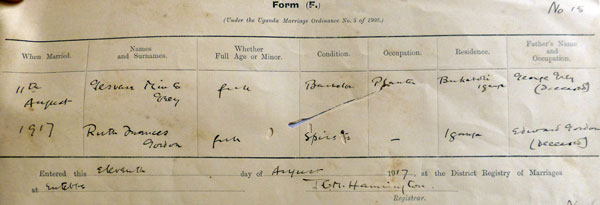 Form (F.)
No 18
(Under the Uganda Marriage Ordinance No. 5 of 1902.)
When Married.
Names and Surnames.
Whether Full Age or Minor.
Condition.
Occupation.
Residence.
Father's Name and Occupation.
11th August
Grey
full
Bachelor
Planter
Iganga
George Grey (Deceased)
1917
Ruth Frances Gordon
full
Spinster
—
Iganga
Edward Gordon (Deceased)
Entered this Eleventh day of August 1917, at the District Registry of Marriages
at Entebbe
Registrar.